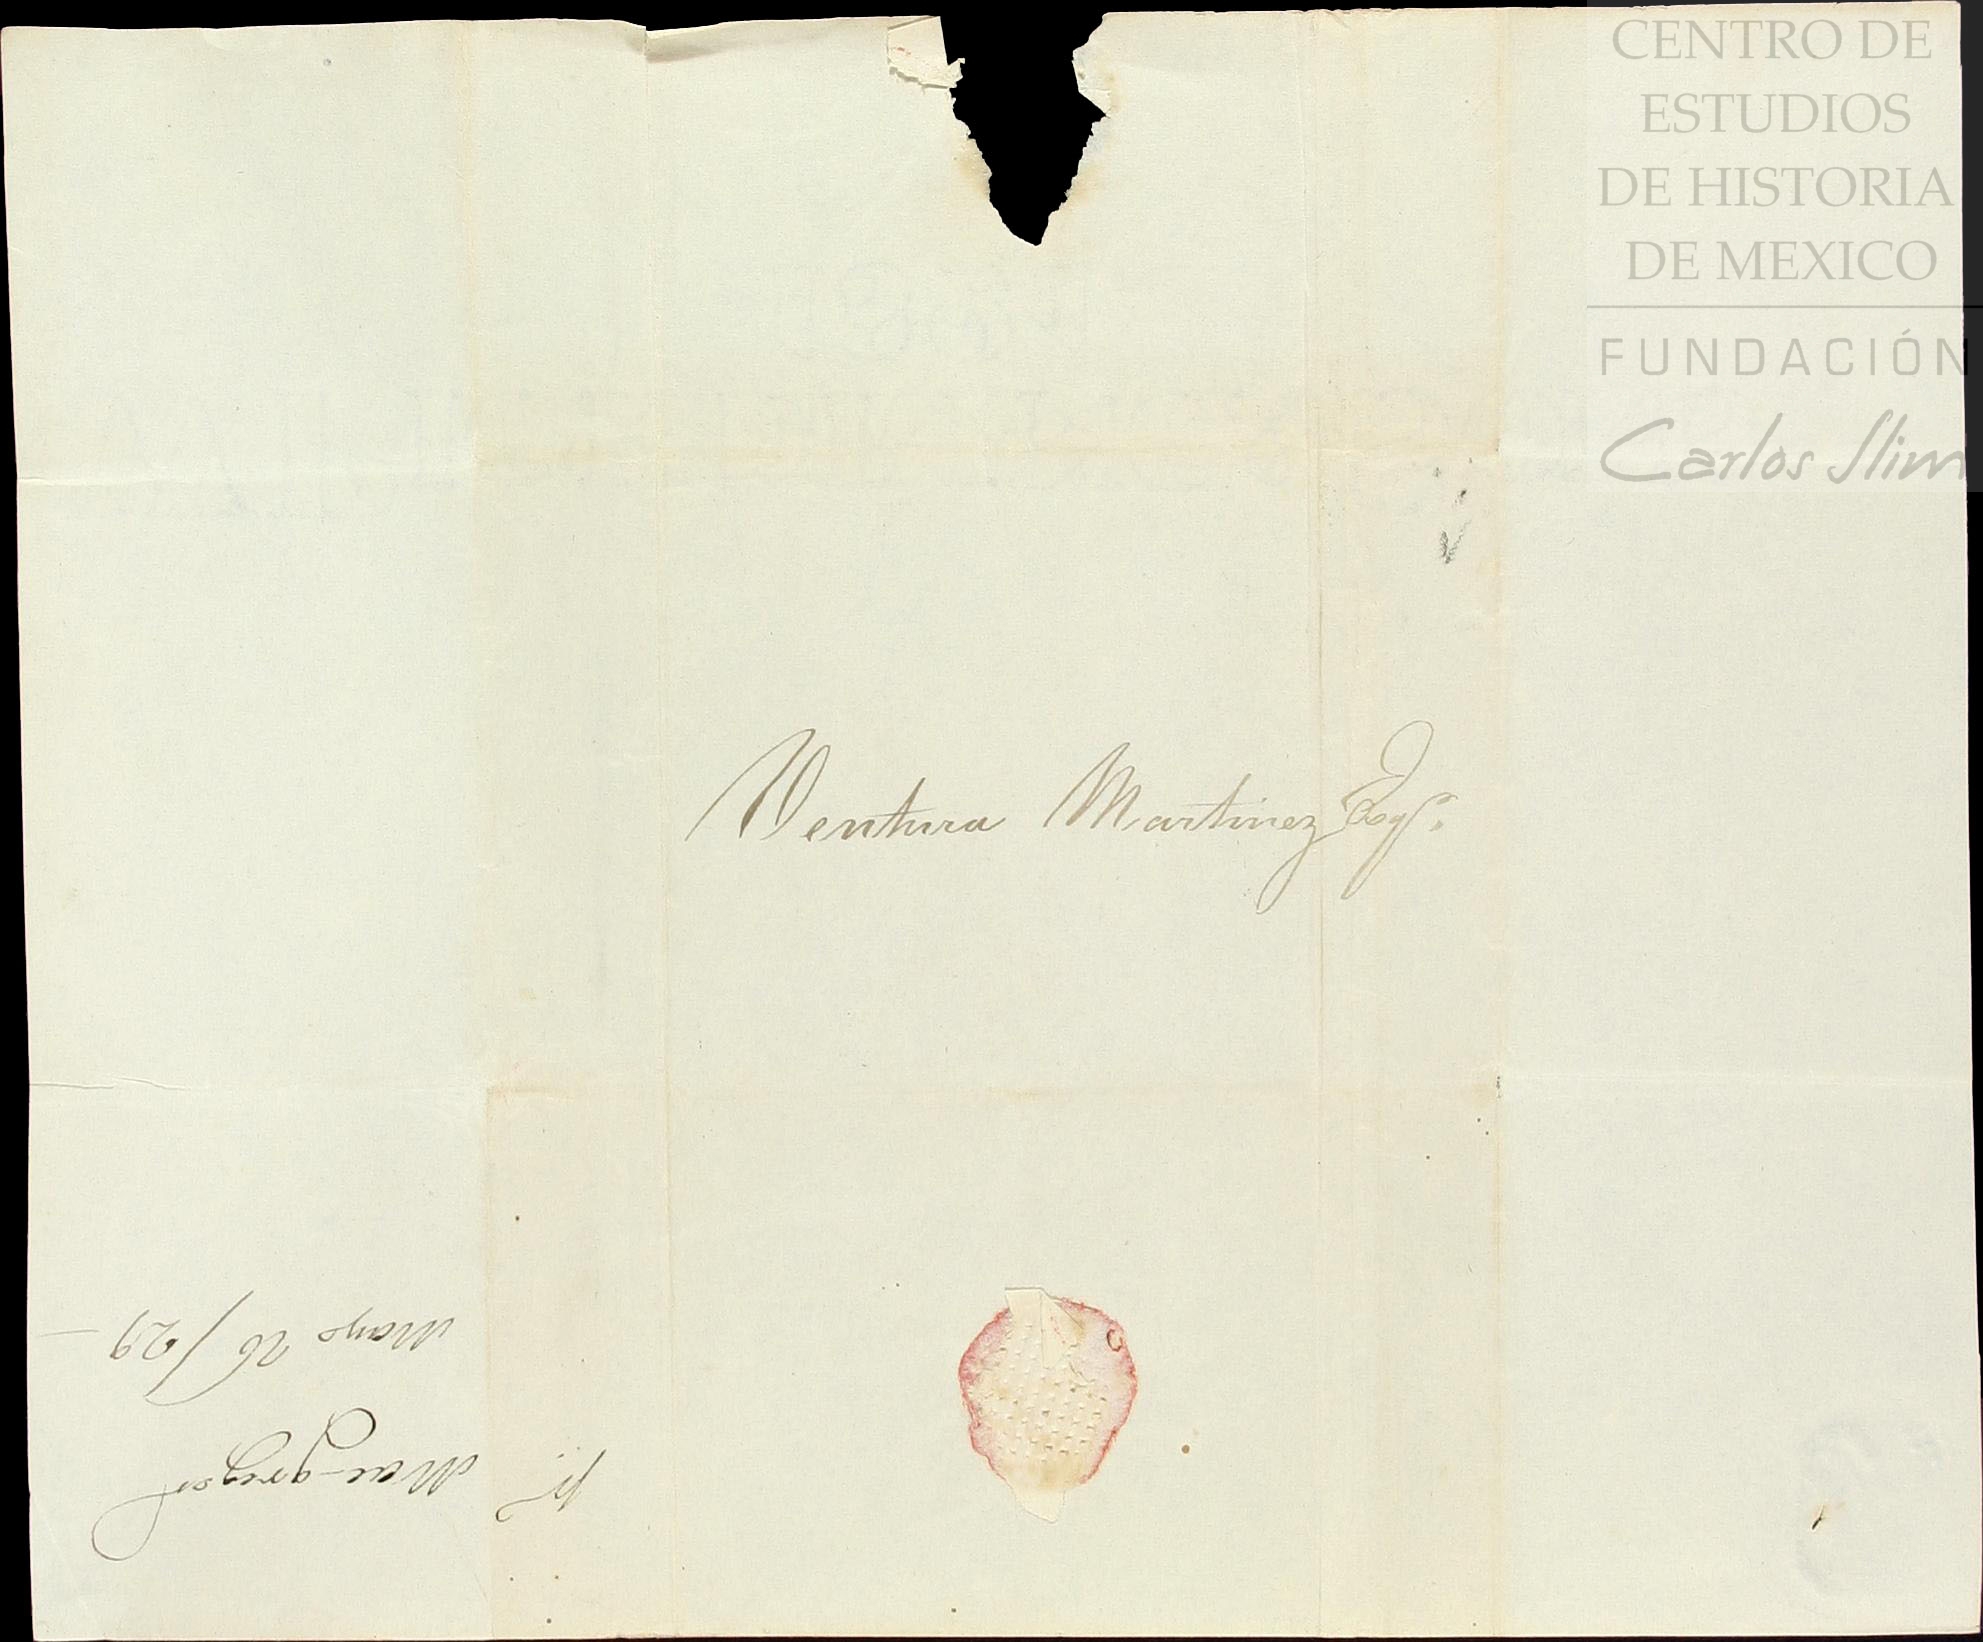 CENTRO DE
ESTUDIOS
DE HISTORIA
DE MEXICO
FUNDACIÓN
Carlos Slim
Ventura Martinez Esqr.
Mac-gregor
Mayo 26/29